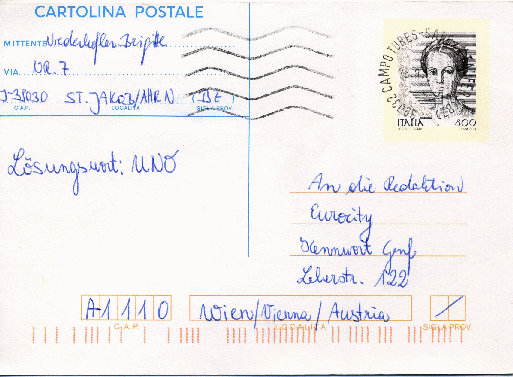 CARTOLINA POSTALE
MITTENTE Niederkofler Brigitte
VIA NR. 7
I-39030 ST. JAKOB/AHRN (BZ)
C.A.P. LOCALITÀ SIGLA PROV.
CAMPO TURES-SAND IN TAUFERS
ITALIA 800
Lösungswort: UNO
An die Redaktion
Eurocity
Kennwort Genf
Leberstr. 122
A-1110 Wien/Vienna/Austria /
C.A.P. LOCALITÀ SIGLA PROV.